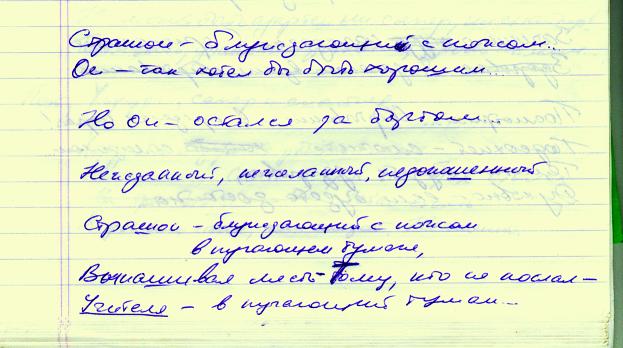 Страшон – блуждающий с ножом...
Он – так хотел бы быть хорошим...
Но он – остался за бортом...
Нежданный, нежеланный, недоношенный
Страшон – блуждающий с ножом
в пугающем тумане,
Вынашивая месть – Тому, кто не послал –
Учителя – в пугающий туман...